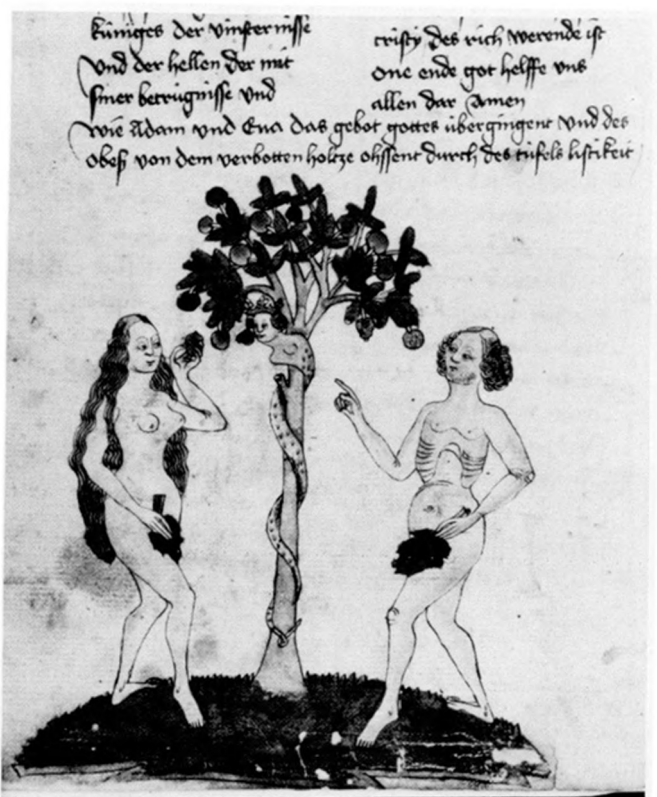 küniges der vinsternisse
Vnd der hellen der mit
siner betrügnisse vnd
cristy des rich werende ist
one ende got helffe vns
allen dar Amen
Wie Adam vnd Eua das gebot gottes übergingent vnd des
obeß von dem verbotten holtze ohssent durch des tüfels listikeit